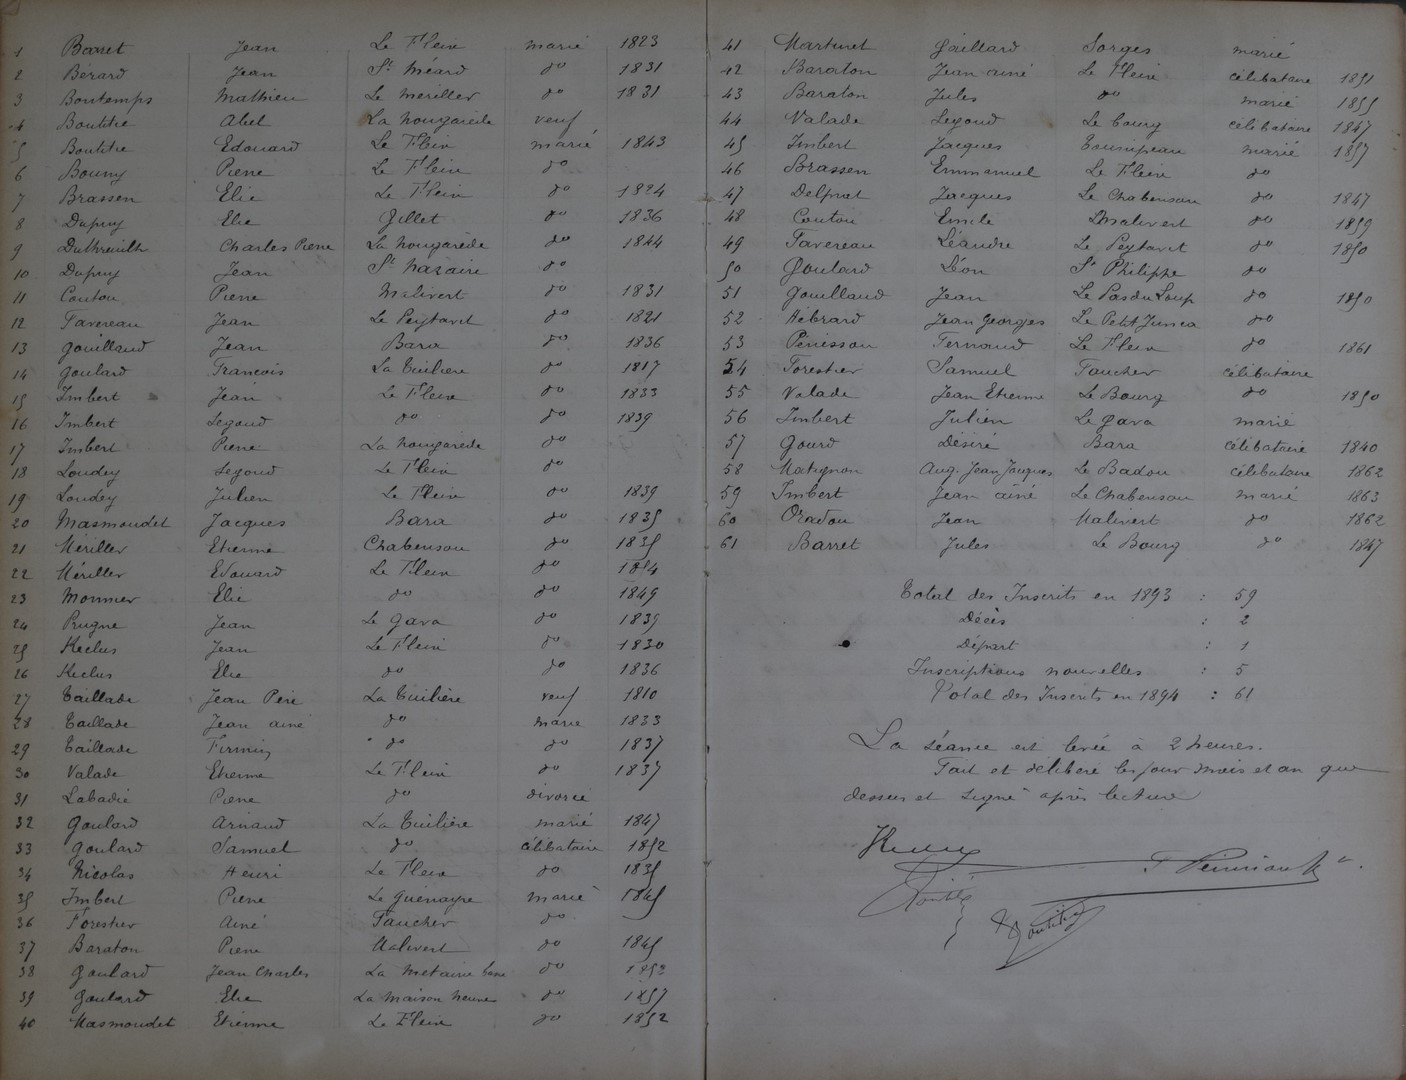 1 Barret Jean Le Fleix marié 1823
2 Bérard Jean St Méard do 1831
3 Bontemps Mathieu Le Meriller do 1831
4 Boutitre Abel La nougarède veuf
5 Boutitre Edouard Le Fleix marié 1843
6 Boumy Pierre Le Fleix do
7 Brassen Elie Le Fleix do 1824
8 Dupuy Elie Gillet do 1836
9 Duthreuilh Charles Pierre La nougarède do 1844
10 Dupuy Jean St Nazaire do
11 Couton Pierre Malivert do 1831
12 Favereau Jean Le Peytavit do 1821
13 Gouillaud Jean Bara do 1836
14 Goulard François La Tuilière do 1817
15 Imbert Jean Le Fleix do 1833
16 Imbert Segond do do 1839
17 Imbert Pierre La nougarède do
18 Loudey Segond Le Fleix do
19 Loudey Julien Le Fleix do 1839
20 Masmoudet Jacques Bara do 1835
21 Mériller Etienne Chabensou do 1835
22 Mériller Edouard Le Fleix do
23 Monnier Elie do do 1849
24 Prugne Jean Le Gava do 1839
25 Reclus Jean Le Fleix do 1830
26 Reclus Elie do do 1836
27 Taillade Jean Père La Tuilière veuf 1810
28 Taillade Jean ainé do marié 1833
29 Taillade Firmin do do 1837
30 Valade Etienne Le Fleix do 1837
31 Labadie Pierre do divorcé
32 Goulard Arnaud La Tuilière marié 1847
33 Goulard Samuel do célibataire 1852
34 Nicolas Henri Le Fleix do 1835
35 Imbert Pierre Le Guénayre marié 1845
36 Forestier Ainé Faucher do
37 Baraton Pierre Malivert do 1845
38 Goulard Jean Charles La Métairie do 1852
39 Goulard Elie La Maison neuve do 1857
40 Masmoudet Etienne Le Fleix do 1852
41 Martinet Gaillard Sorges marié
42 Baraton Jean ainé Le Fleix célibataire 1851
43 Baraton Jules do marié 1855
44 Valade Segond Le bourg célibataire 1847
45 Imbert Jacques marié 1857
46 Brassen Emmanuel Le Fleix do
47 Delprat Jacques Le Chabensou do 1847
48 Couton Emile Malivert do 1859
49 Favereau Léandre Le Peytavit do 1850
50 Goulard Léon St Philippe do
51 Gouillaud Jean Le Pas du Loup do 1850
52 Hébrard Jean Georges Le Petit Junca do
53 Pénisson Fernand Le Fleix do 1861
54 Forestier Samuel Faucher célibataire
55 Valade Jean Etienne Le Bourg do 1850
56 Imbert Julien Le Gava marié
57 Gourd Désiré Bara célibataire 1840
58 Matignon Aug. Jean Jacques Le Badou célibataire 1862
59 Imbert Jean aîné Le Chabensou marié 1863
60 Oradou Jean Malivert do 1862
61 Barret Jules Le Bourg do 1847
Total des Inscrits en 1893 : 59
Décès : 2
Départ : 1
Inscriptions nouvelles : 5
Total des Inscrits en 1894 : 61
La séance est levée à 2 heures.
Fait et délibéré les jour mois et an que
dessus et signé après lecture